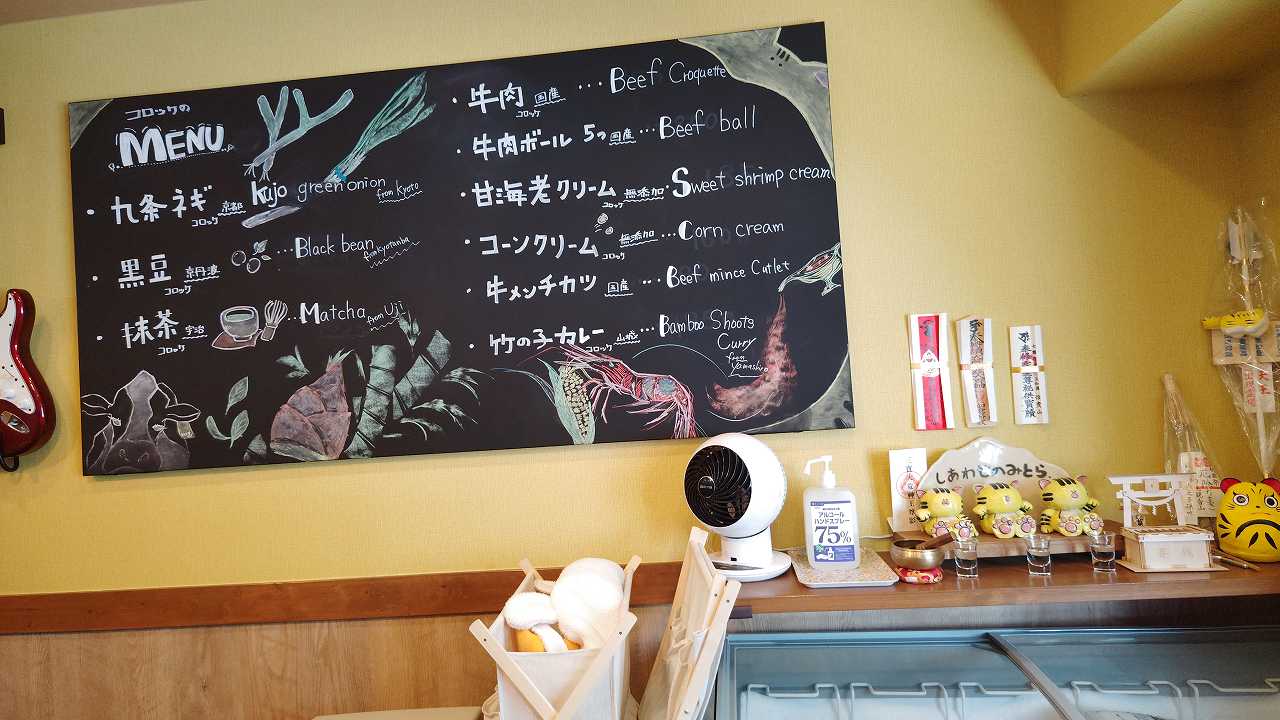 コロッケの
MENU
・九条ネギ コロッケ 京都 Kujo green onion from kyoto
・黒豆 コロッケ 京丹波 …Black bean from kyotanba
・抹茶 コロッケ 宇治 …Matcha from Uji
・牛肉 コロッケ 国産 …Beef Croquette
・牛肉ボール 5つ 国産 …Beef ball
・甘海老クリーム コロッケ 無添加 Sweet shrimp cream
・コーンクリーム コロッケ 無添加 …Corn cream
・牛メンチカツ 国産 …Beef mince Cutlet
・竹の子カレー コロッケ 山城 …Bamboo Shoots
Curry
from
Yamashiro
しあわせのみとら
アルコール
ハンドスプレー
75%